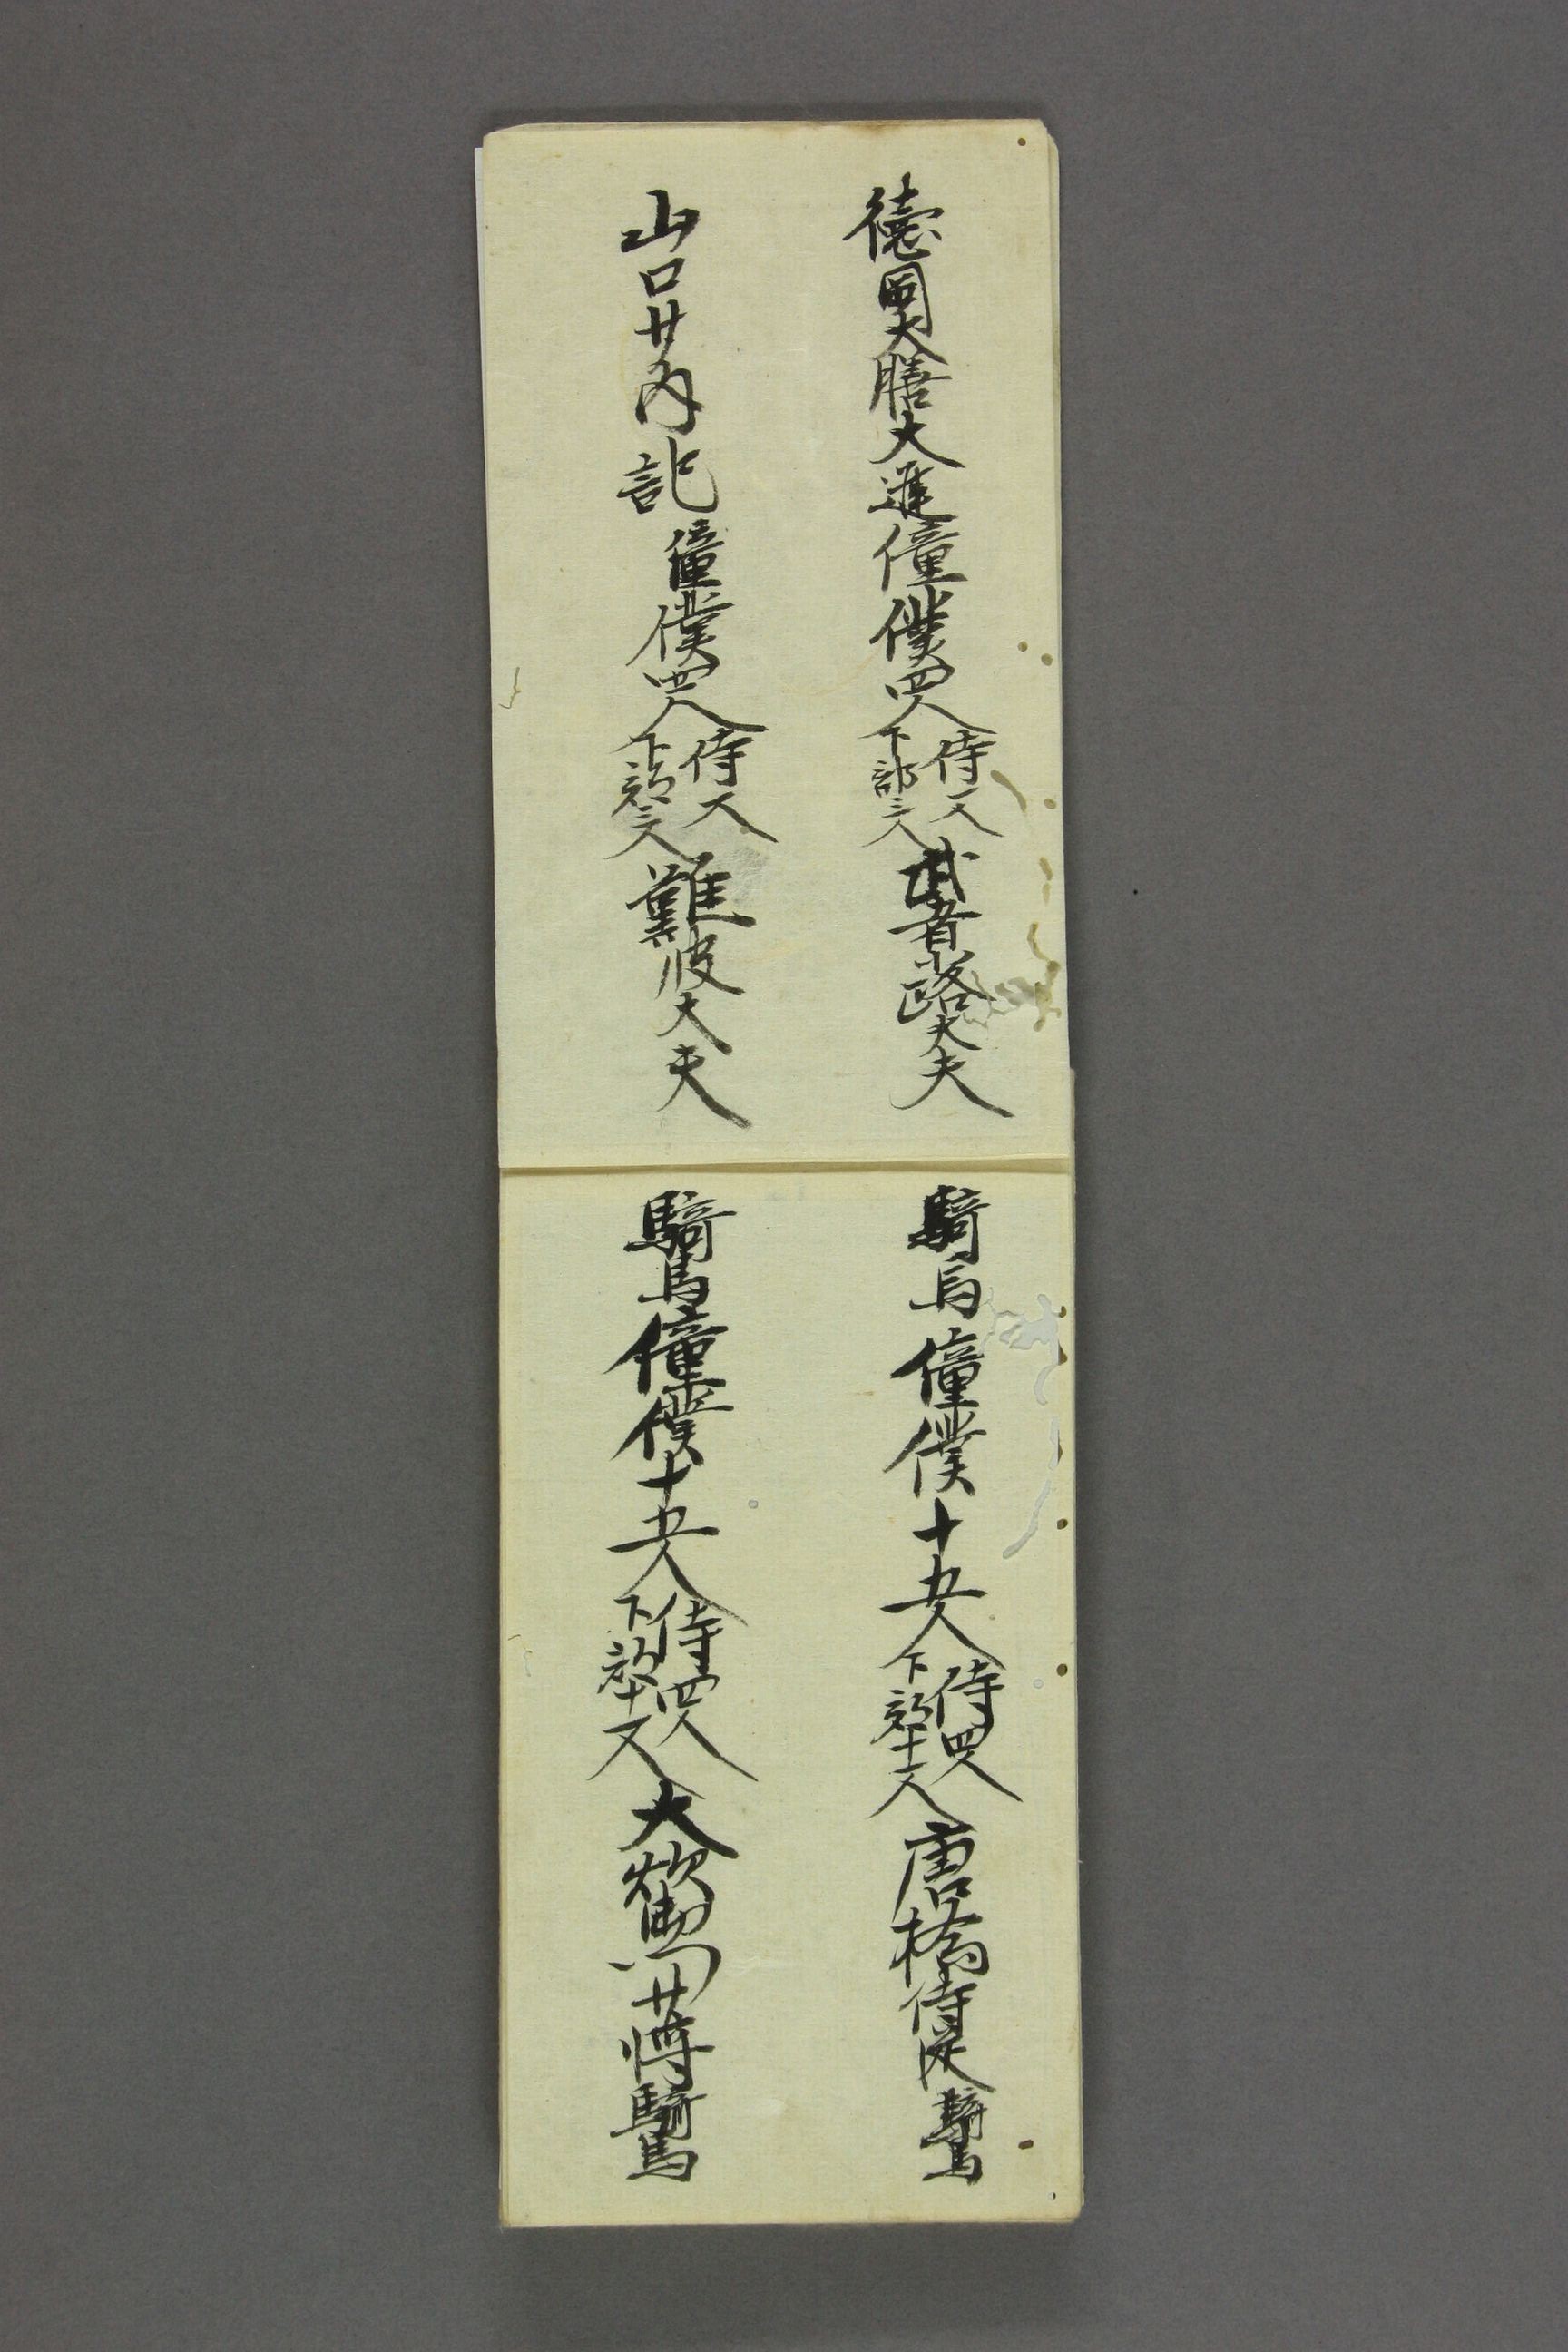 徳岡大膳大進僮僕四人侍一人下部三人武者小路大夫
山口少内記僮僕四人侍一人下部三人難波大夫
騎馬僮僕十五人侍四人下部十一人唐橋侍従騎馬
騎馬僮僕十五人侍四人下部十一人大炊御門少将騎馬